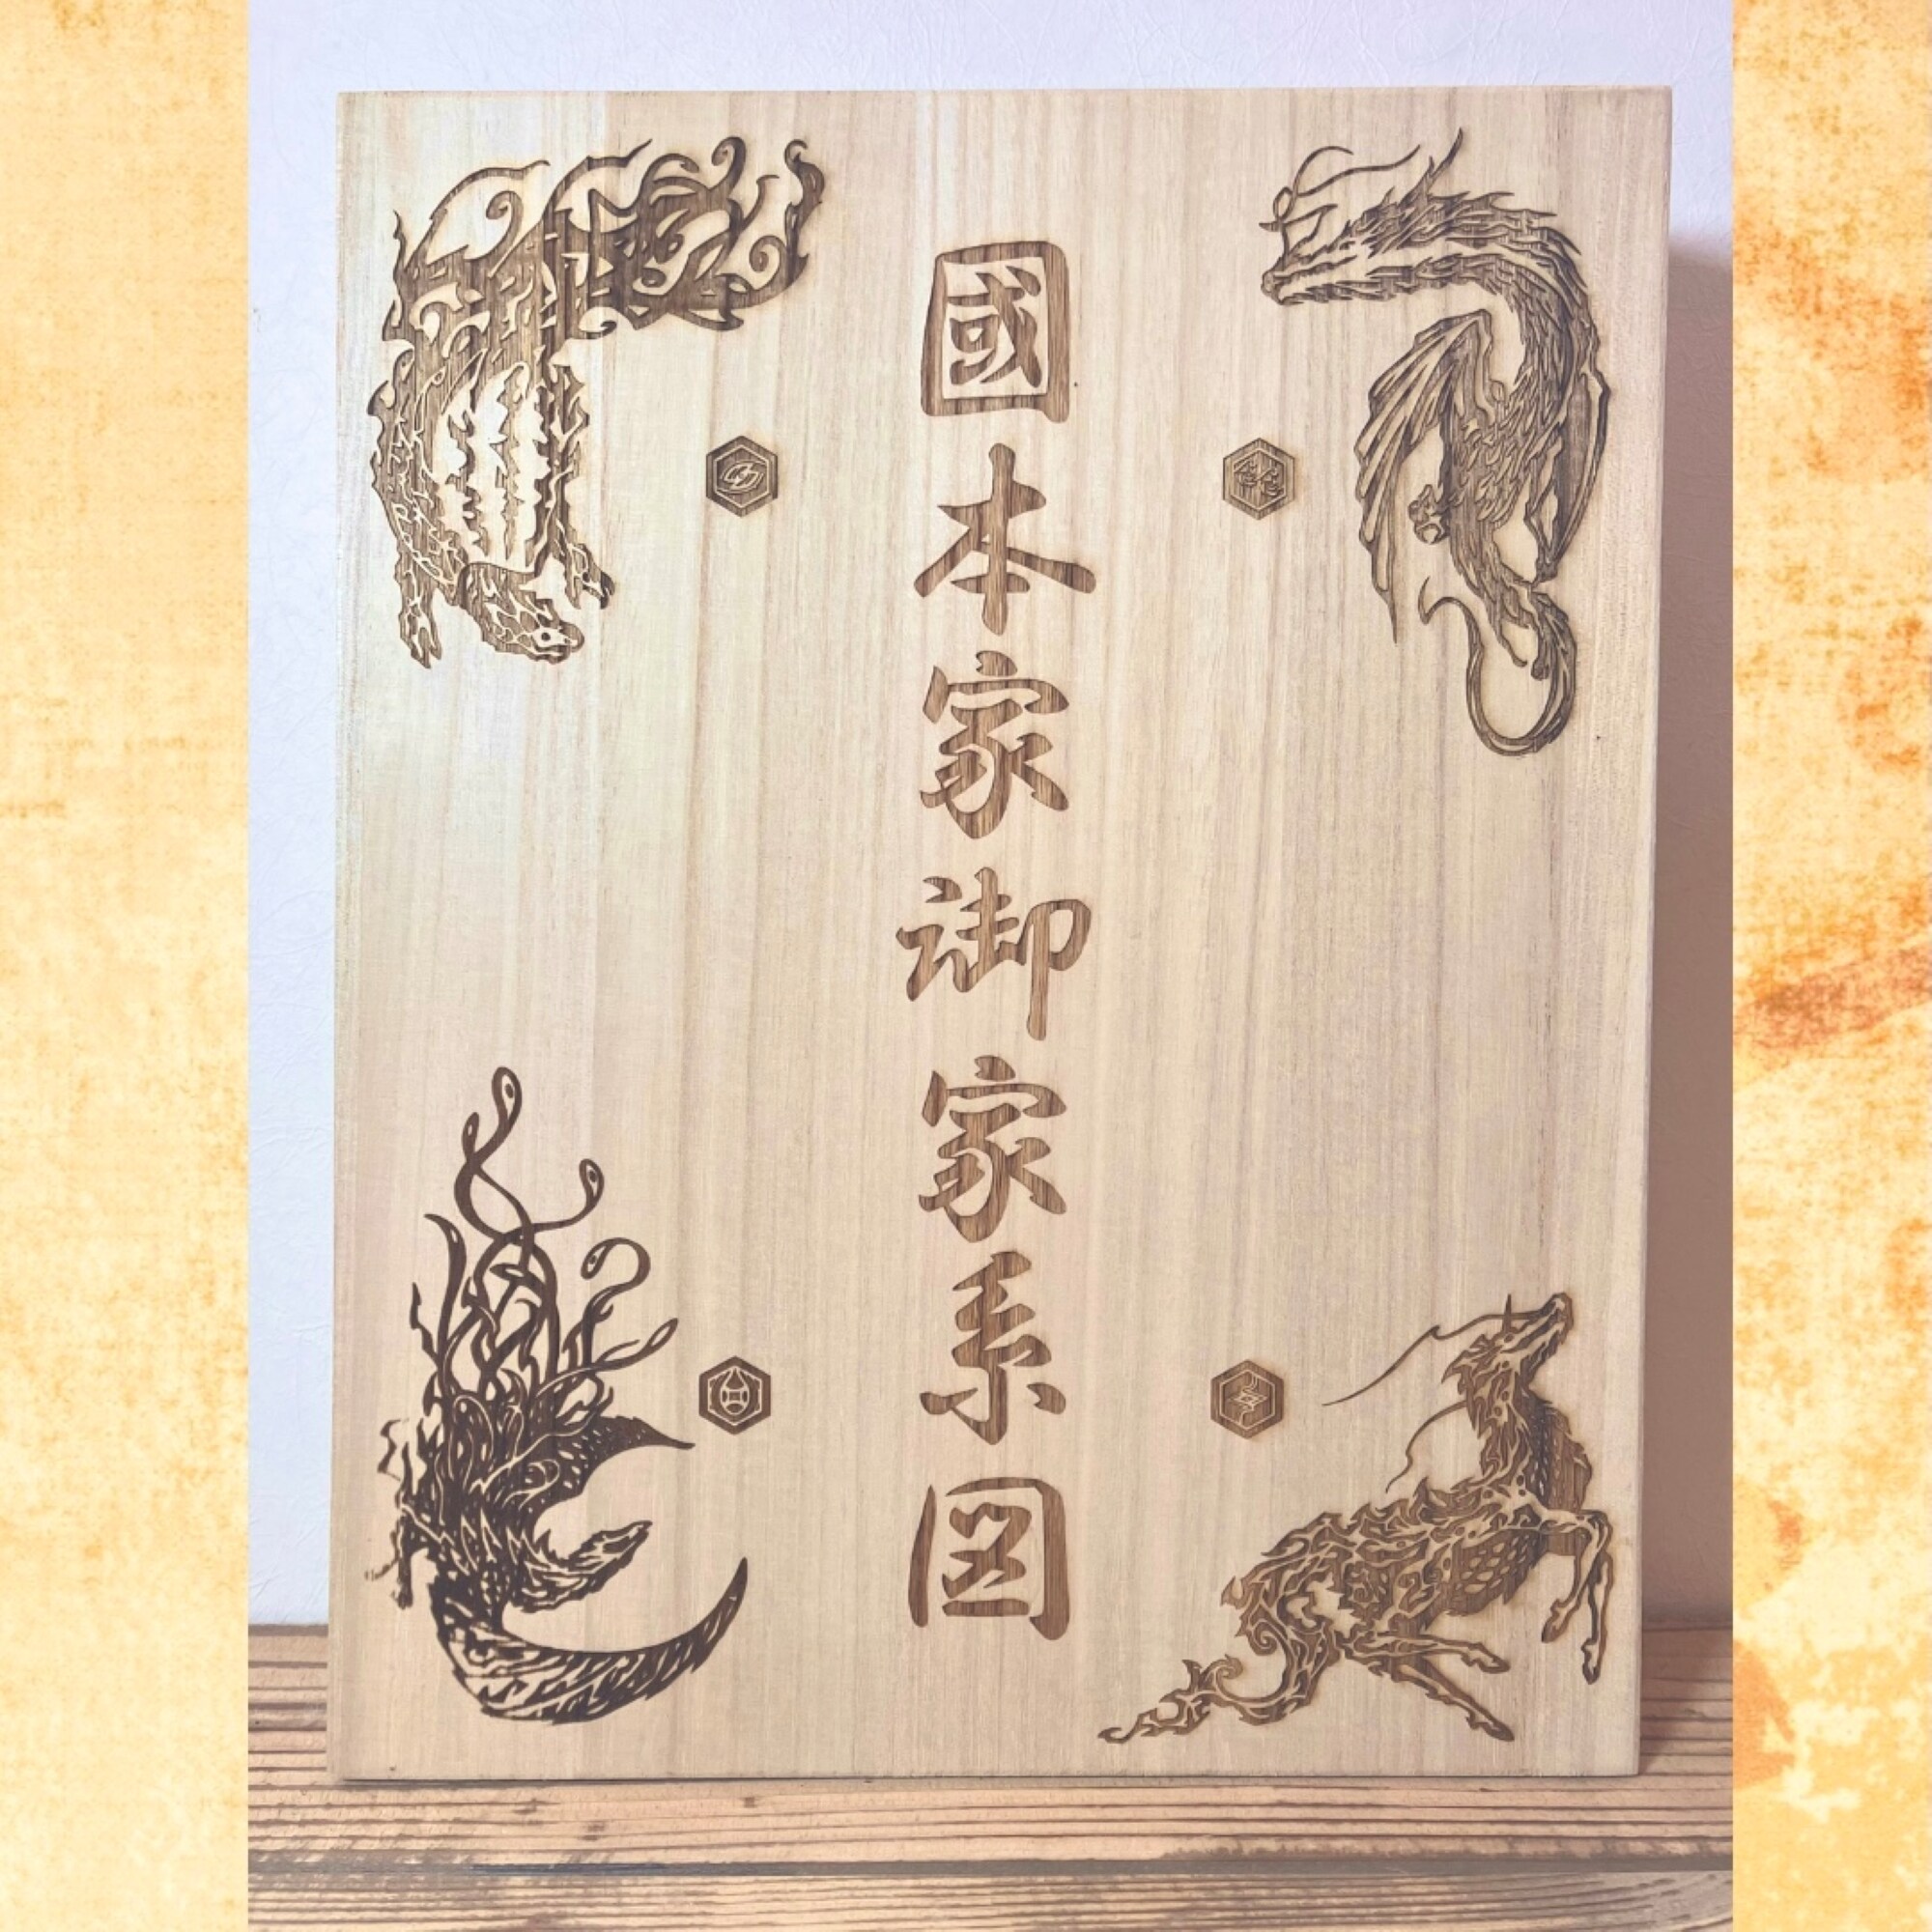 國本家御家系図